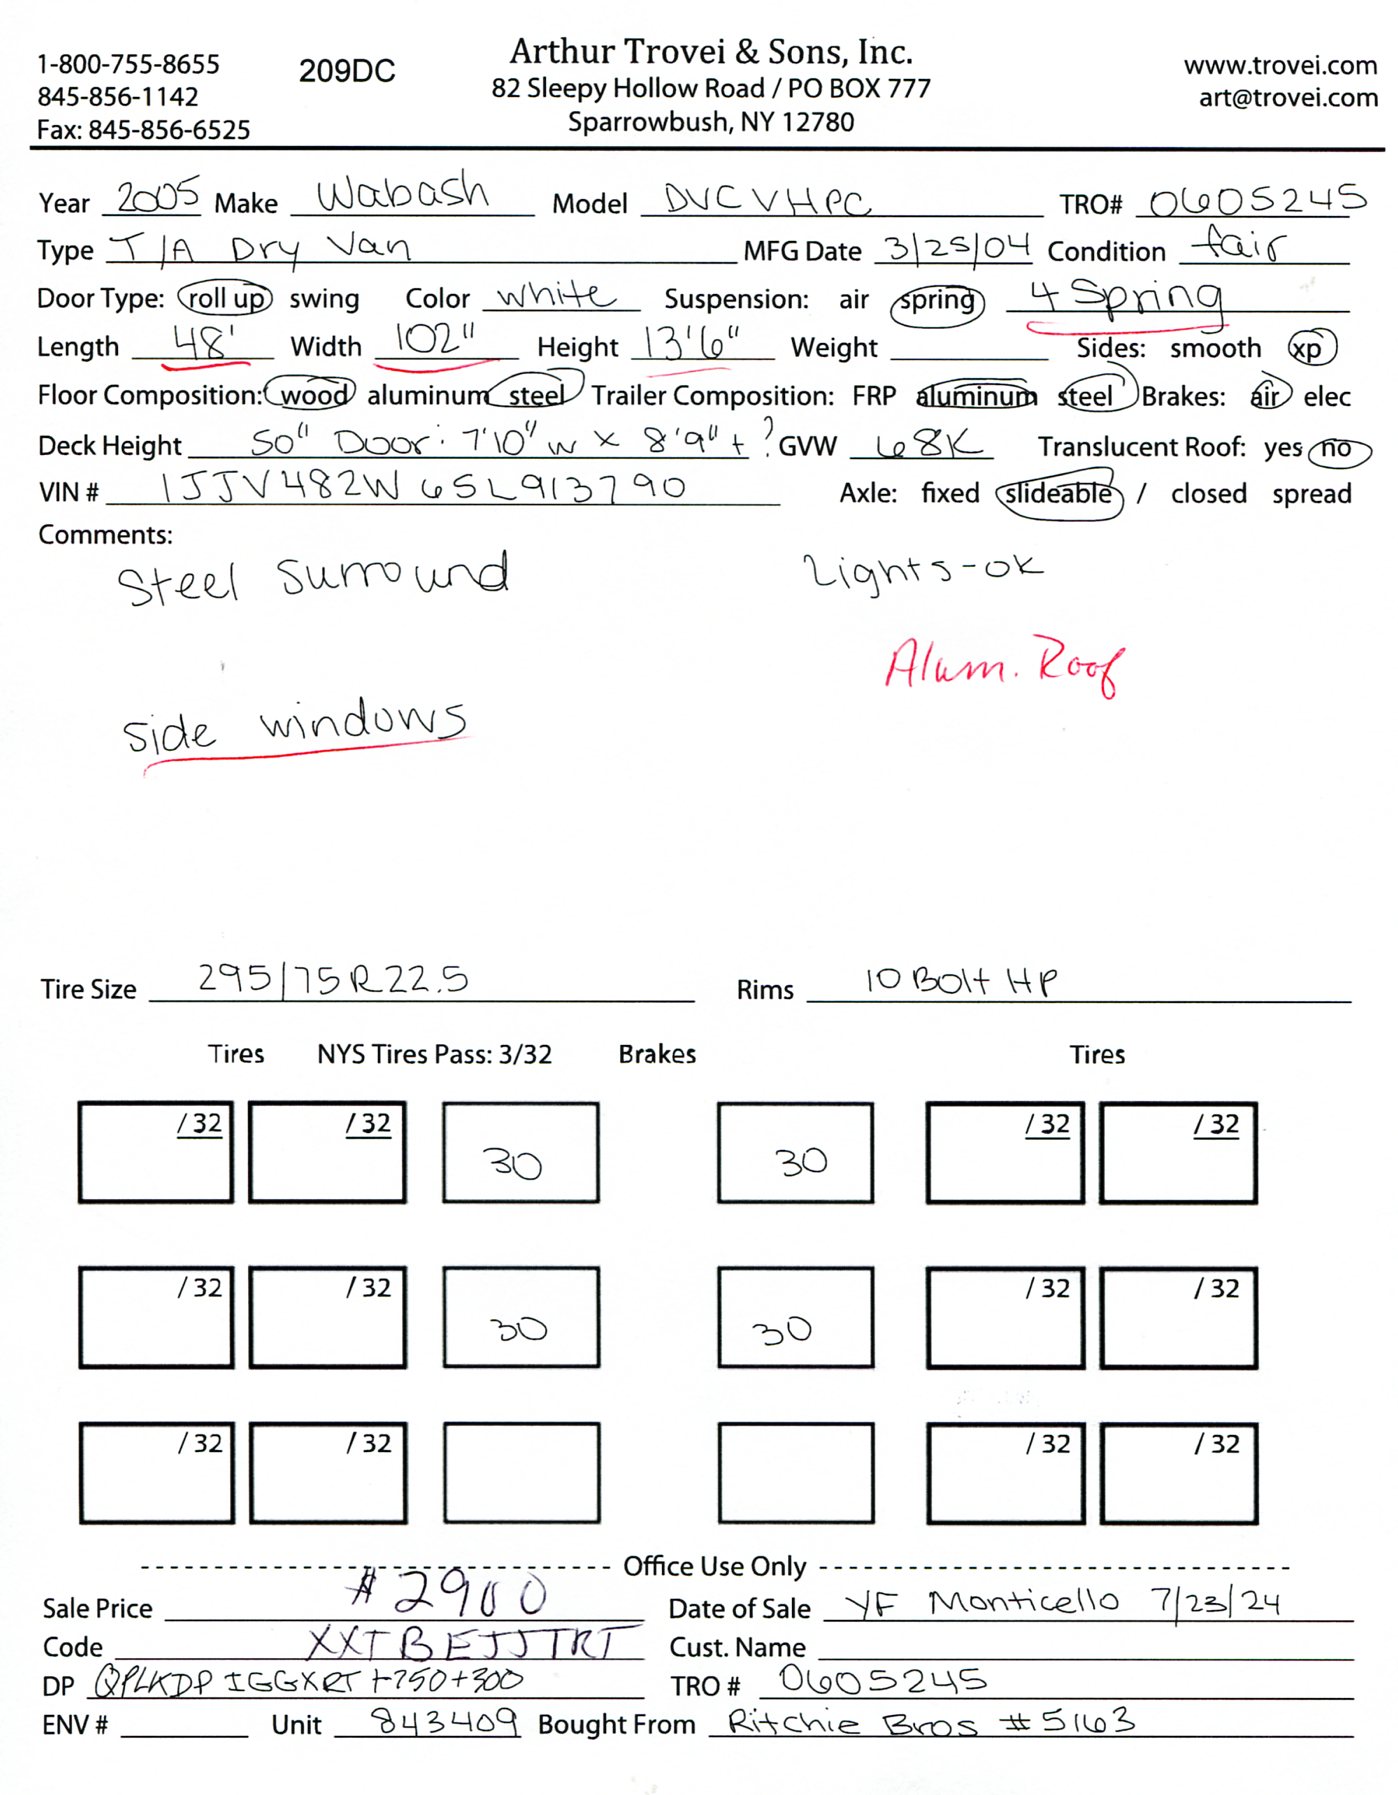 Arthur Trovei & Sons, Inc.
1-800-755-8655 209DC 82 Sleepy Hollow Road / PO BOX 777 www.trovei.com
845-856-1142 art@trovei.com
Fax: 845-856-6525 Sparrowbush, NY 12780
Year 2005 Make Wabash Model DVCVHPC TRO# 0605245
Type T/A Dry Van MFG Date 3/25/04 Condition fair
Door Type: roll up swing Color white Suspension: air spring 4 Spring
Length 48' Width 102" Height 13'6" Weight Sides: smooth xp
Floor Composition: wood aluminum steel Trailer Composition: FRP aluminum steel Brakes: air elec
Deck Height 50" Door: 7'10" w x 8'9" t ? GVW 68K Translucent Roof: yes no
VIN # 1JJV482W65L913790 Axle: fixed slideable / closed spread
Comments:
Steel surround Lights-ok
Alum. Roof
side windows
Tire Size 295/75R22.5 Rims 10 Bolt HP
Tires NYS Tires Pass: 3/32 Brakes Tires
/ 32 / 32 30 30 / 32 / 32
/ 32 / 32 30 30 / 32 / 32
/ 32 / 32 / 32 / 32
Office Use Only
Sale Price #2900 Date of Sale YF Monticello 7/23/24
Code XXTBEJJTRT Cust. Name
DP QPLKDP IGGXRT +750+300 TRO # 0605245
ENV # Unit 843409 Bought From Ritchie Bros #5163